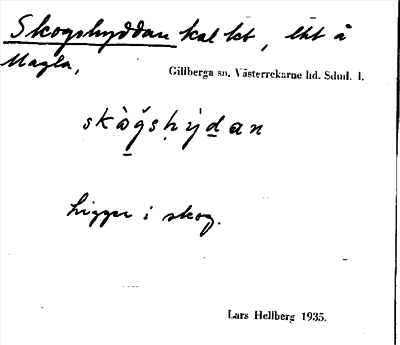 Skogshyddan kal kt, lht å
Magla,
Gillberga sn. Västerrekarne hd. Sdml. l.
skògshỳdan
Ligger i skog.
Lars Hellberg 1935.